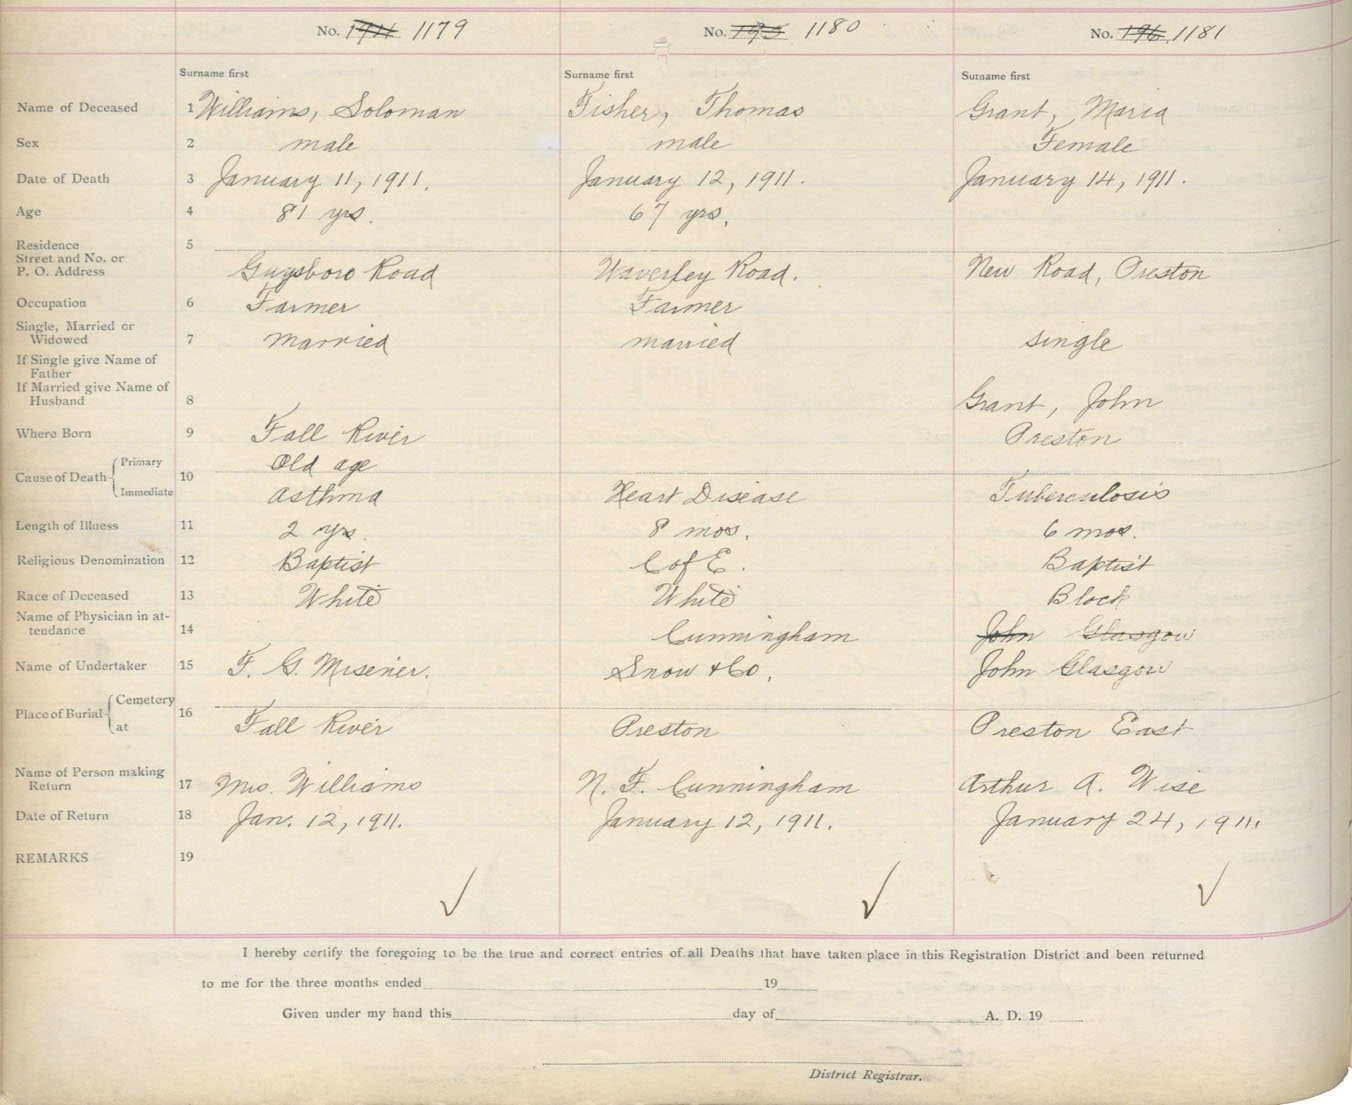 No. 1179 No. 1180 No. 1181
Surname first Surname first Surname first
Name of Deceased 1 Williams, Soloman Fisher, Thomas Grant, Maria
Sex 2 male male Female
Date of Death 3 January 11, 1911. January 12, 1911. January 14, 1911.
Age 4 81 yrs. 67 yrs.
Residence 5
Street and No. or
P. O. Address Guysboro Road Waverley Road. New Road, Preston
Occupation 6 Farmer Farmer
Single, Married or
Widowed 7 married married single
If Single give Name of
Father
If Married give Name of
Husband 8 Grant, John
Where Born 9 Fall River Preston
Cause of Death Primary 10 Old age
Immediate Asthma Heart Disease Tuberculosis
Length of Illness 11 2 yrs. 8 mos. 6 mos.
Religious Denomination 12 Baptist C of E. Baptist
Race of Deceased 13 White White Black
Name of Physician in at-
tendance 14 Cunningham John Glasgow
Name of Undertaker 15 F. G. Misener. Snow & Co. John Glasgow
Place of Burial Cemetery 16
at Fall River Preston Preston East
Name of Person making
Return 17 Mrs. Williams N. F. Cunningham Arthur A. Wise
Date of Return 18 Jan. 12, 1911. January 12, 1911. January 24, 1911.
REMARKS 19
I hereby certify the foregoing to be the true and correct entries of all Deaths that have taken place in this Registration District and been returned
to me for the three months ended 19
Given under my hand this day of A. D. 19
District Registrar.